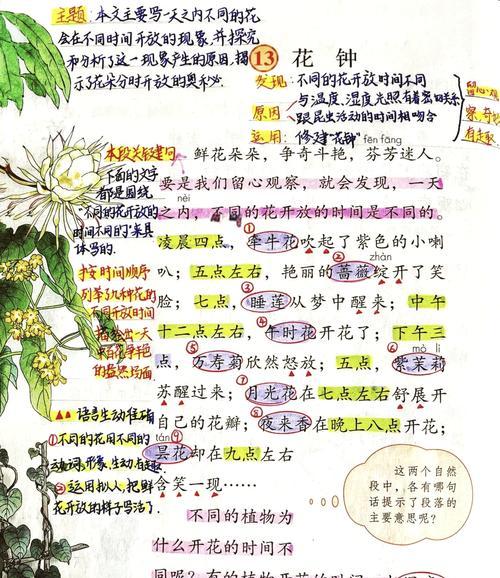 主题:本文主要写一天之内不同的花
会在不同时间开放的现象,并探究
和分析了这一现象产生的原因,揭
示了花朵分时开放的奥秘。
13 花钟
发现:不同的花开放时间不同
原因 与温度、湿度光照有着密切关系
跟昆虫活动的时间相吻合
运用:修建"花钟"
留心观
察,奇妙
有趣
本段关键句
下面的文字
都是围绕
"不同的花开放的
时间不同的"来具
体写的.
fēn fāng
鲜花朵朵,争奇斗艳,芬芳迷人。
要是我们留心观察,就会发现,一天
nèi
之内,不同的花开放的时间是不同的。
凌晨四点,①牵牛花吹起了紫色的小喇
zhàn
叭;五点左右,艳丽的②蔷薇绽开了笑
脸;七点,③睡莲从梦中醒来;中午
十二点左右,④午时花开花了;下午三
mò lì
点,⑤万寿菊欣然怒放;五点,⑥紫茉莉
苏醒过来;⑦月光花在七点左右舒展开
自己的花瓣;⑧夜来香在晚上八点开花;
tán ⑨
昙花却在九点左右
含笑一现……
不同的植物为
什么开花的时间不
同呢?有的植物开花的时间
按时间顺序
列举了几种花的
不同开放时间
描绘出一天
中百花争艳
的盎然场面
语言生动准确
①不同的花用不同的
动词,形象,生动,有趣
②运用拟人,把鲜
花开放的样子写活了.
这两个自然
段中,各有哪句
话提示了段落的
主要意思呢?